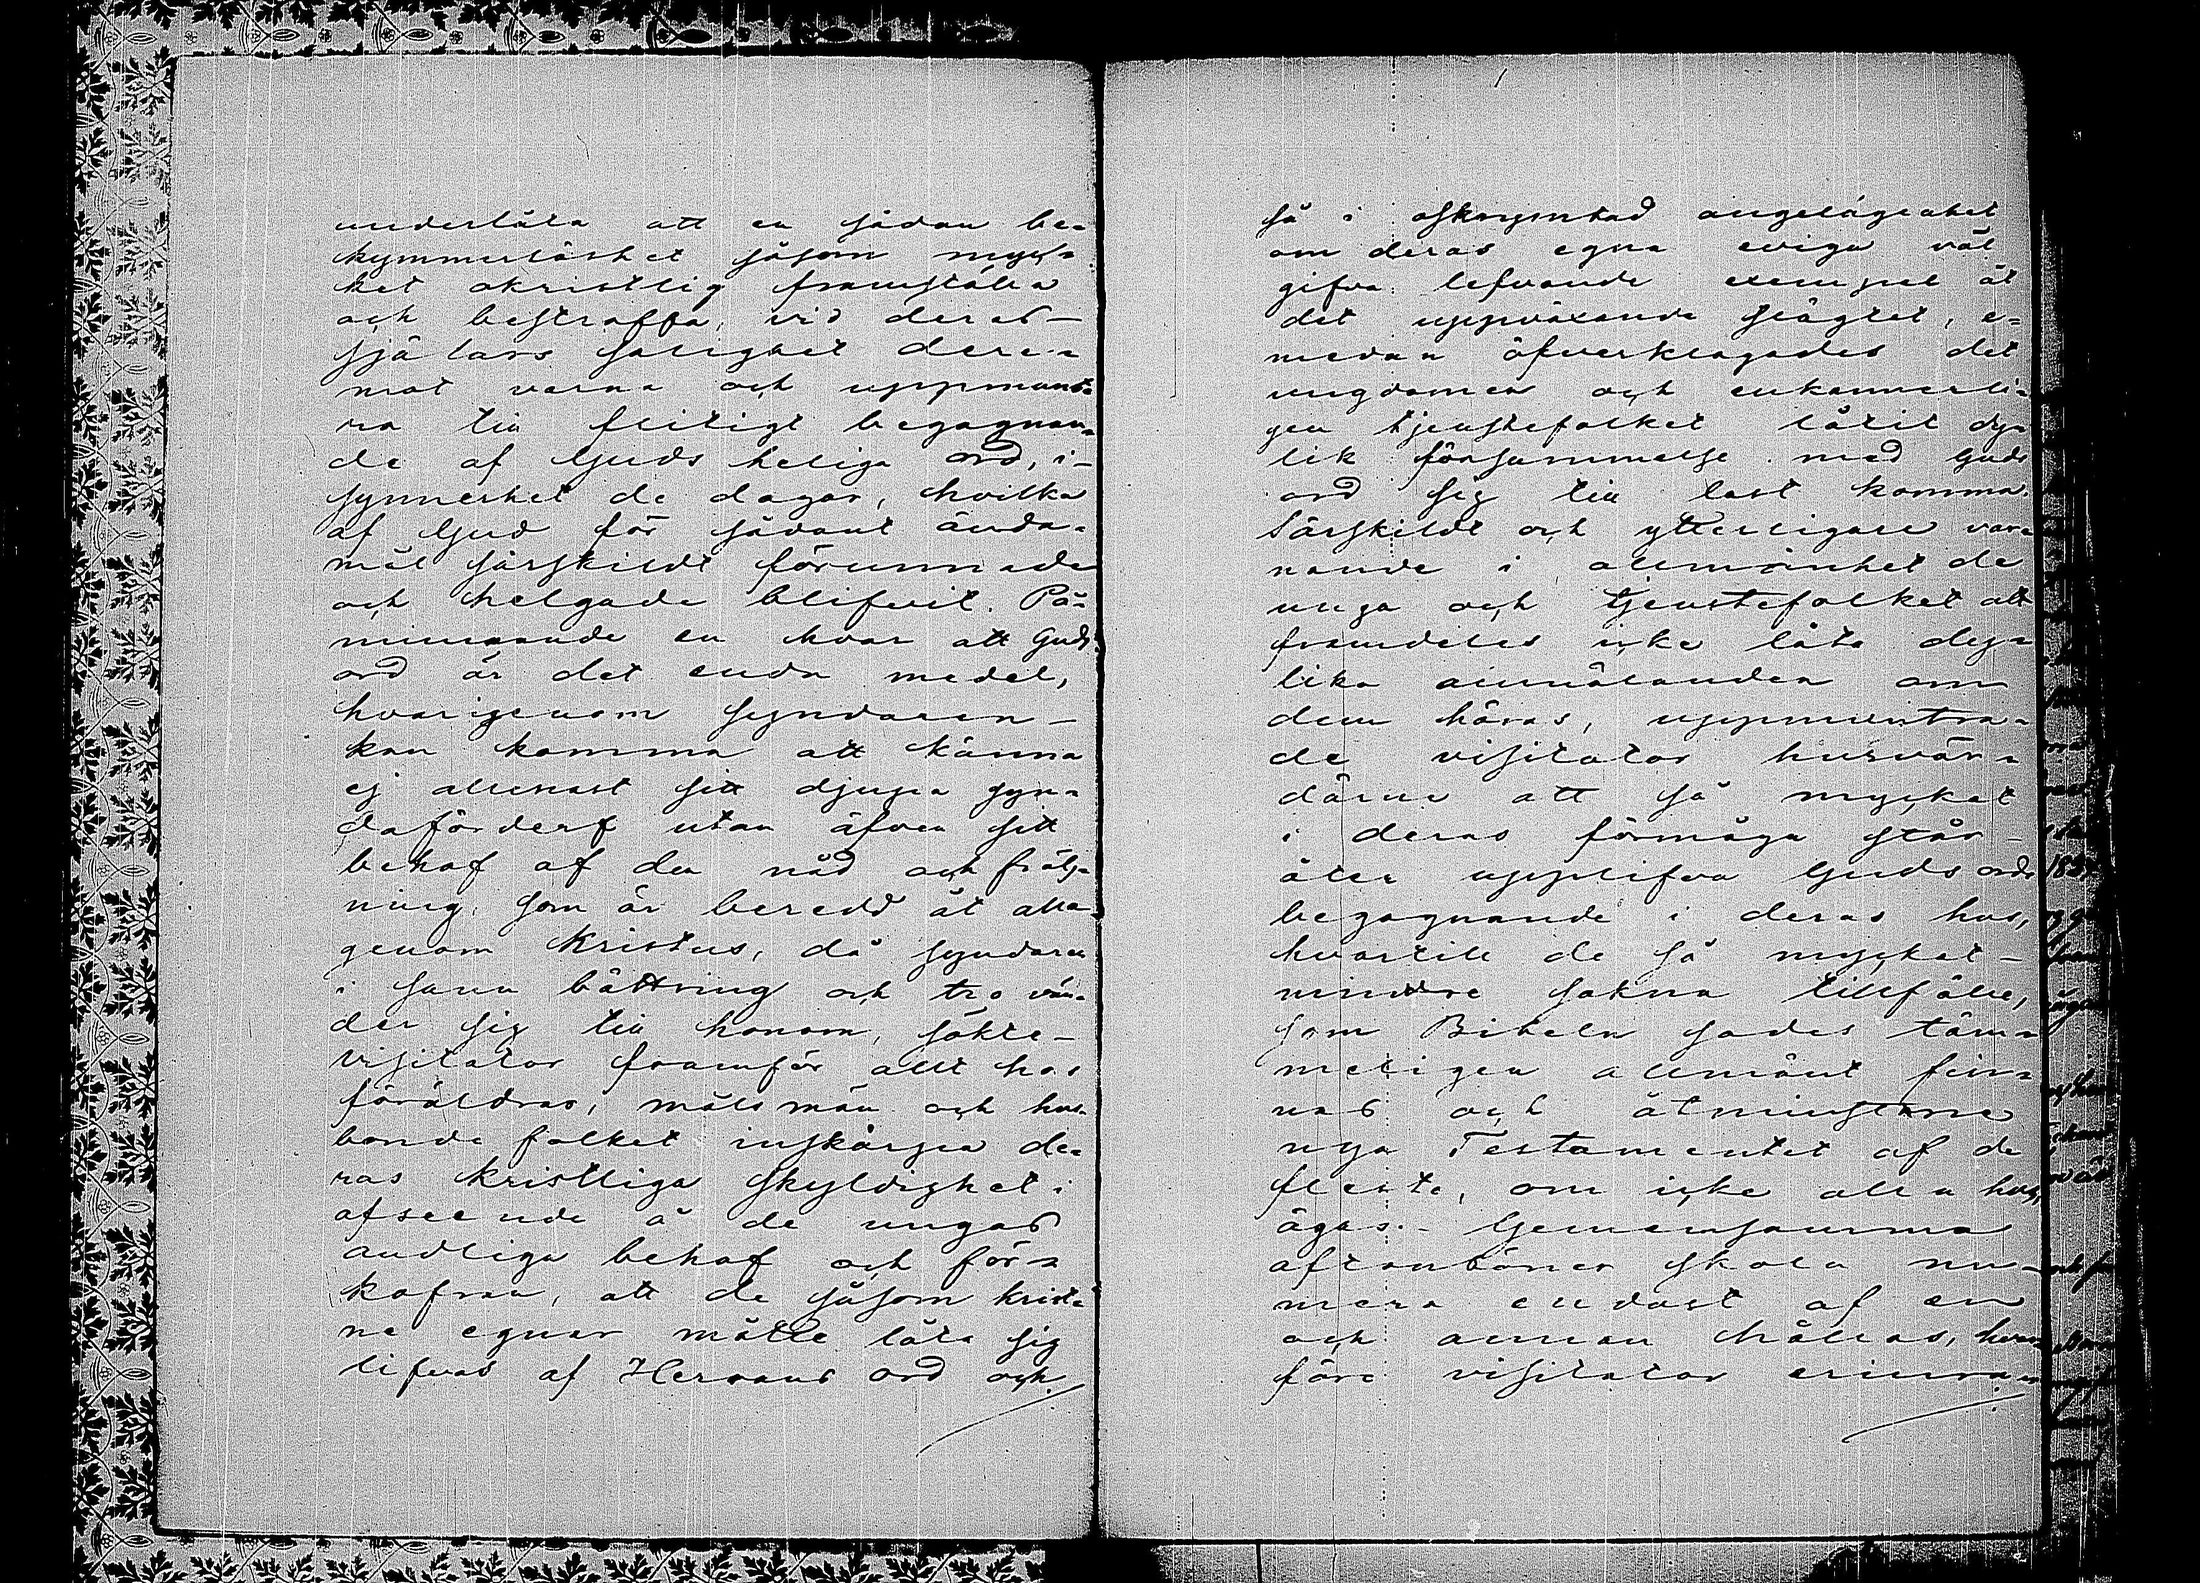 underlåta att en sådan be-
kymmerlöshet såsom myc-
ket okristlig framställa
och bestraffa, vid deras
själars salighet dere-
mot varna och uppmunt-
ra till flitigt begagnan-
de af Guds heliga ord, i-
synnerhet de dagar, hvilka
af Gud för sådant ända-
mål särskildt förunnade
och helgade blifvit. På-
minnande en hvar att Guds
ord är det enda medel,
hvarigenom syndaren
kan komma att känna
ej allenast sitt djupa syn-
daförderf utan äfven sitt
behof af den nåd och fräls-
ning, som är beredd åt alla
genom Kristus, då syndaren
i sann bättring och tro vän-
der sig till honom, sökte
visitator framför allt hos
föräldrar, målsmän och hus-
bonde folket inskärpa de-
ras kristliga skyldighet i
afseende å de ungas
andliga behof och för-
kofran, att de såsom krist-
ne egnar måtte låta sig
lifvas af Herrans ord och
så i oskrymtad angelägenhet
om deras egna eviga väl
gifva lefvande exempel åt
det uppväxande slägtet, e-
medan öfverklagades det
ungdomen och enkannerli-
gen tjenstefolket låtit dy-
lik försummelse med Guds
ord sig till last komma.
Särskildt och ytterligare var-
nande i allmänhet de
unga och tjenstefolket att
framdeles icke låta dy-
lika anmälanden om
dem höras, uppmuntra-
de visitator husvär-
darne att så mycket
i deras förmåga står
åter upplifva Guds ords
begagnande i deras hus,
hvartill de så mycket
mindre sakna tillfälle,
som Bibeln sades täm-
meligen allmänt fin-
nas och åtminstone
nya Testamentet af de
fleste, om icke alla hus,
ägas. - Gemensamma
aftonböner skola nu-
mera endast af en
och annan hållas, hvar-
före visitator erinra-